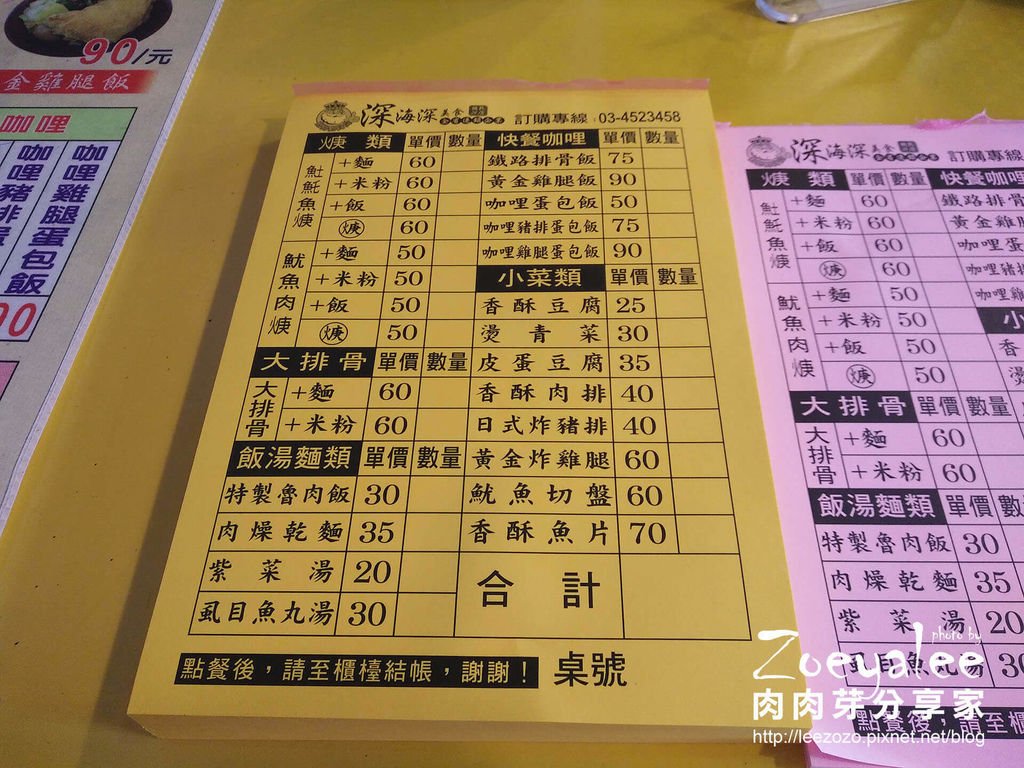 90/元
金雞腿飯
咖哩
咖哩雞腿蛋包飯
深海深美食
訂購專線:03-4523458
焿類 單價 數量 快餐咖哩 單價 數量
魠魚焿
+麵 60 鐵路排骨飯 75
+米粉 60 黃金雞腿飯 90
+飯 60 咖哩蛋包飯 50
焿 60 咖哩豬排蛋包飯 75
魷魚肉焿
+麵 50 咖哩雞腿蛋包飯 90
+米粉 50 小菜類 單價 數量
+飯 50 香酥豆腐 25
焿 50 燙青菜 30
大排骨 單價 數量 皮蛋豆腐 35
大排骨
+麵 60 香酥肉排 40
+米粉 60 日式炸豬排 40
飯湯麵類 單價 數量 黃金炸雞腿 60
特製魯肉飯 30 魷魚切盤 60
肉燥乾麵 35 香酥魚片 70
紫菜湯 20 合計
虱目魚丸湯 30
點餐後,請至櫃檯結帳,謝謝! 桌號
深海深美食
訂購專線
焿類 單價 數量 快餐咖哩
+麵 60 鐵路排骨
+米粉 60 黃金雞
+飯 60 咖哩蛋
焿 60 咖哩豬
魷魚肉焿
+麵 50 咖哩雞
+米粉 50 小
+飯 50 香
焿 50 燙
大排骨 單價 數量
大排骨
+麵 60
+米粉 60
飯湯麵類 單價 數
特製魯肉飯 30
肉燥乾麵 35
紫菜湯 20
虱目魚丸湯 30
點餐後,請至櫃
photo by
Zoeyalee
肉肉芽分享家
http://leezozo.pixnet.net/blog